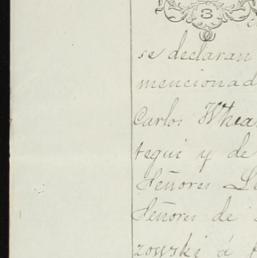 3
se declaran
mencionad
Carlos Whea
tegui y de
Señores L
Señores de
zowski á